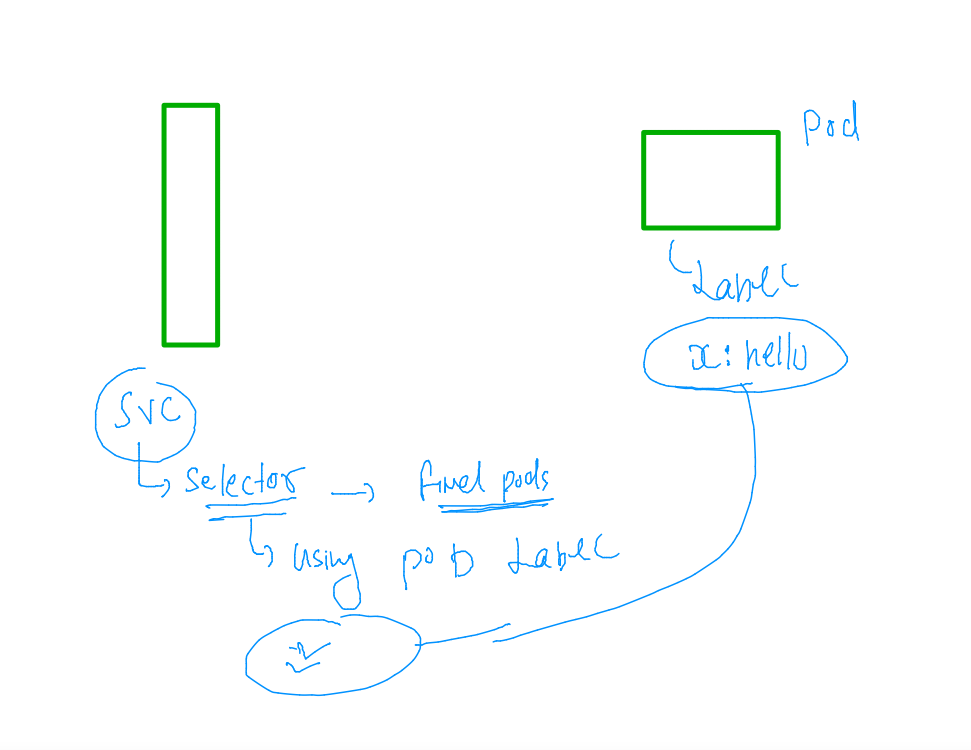 Pod
Label
x: hello
SVC
Selector → find pods
using POD Label